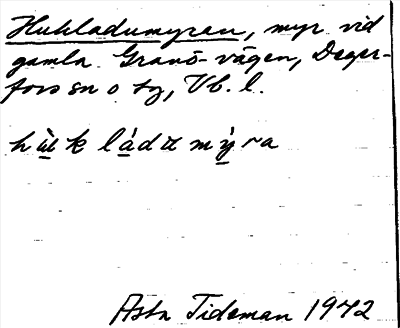 Hukladumyran, myr vid
gamla Granö-vägen, Deger-
fors sn o tg, Vb. l.
Asta Tideman 1942